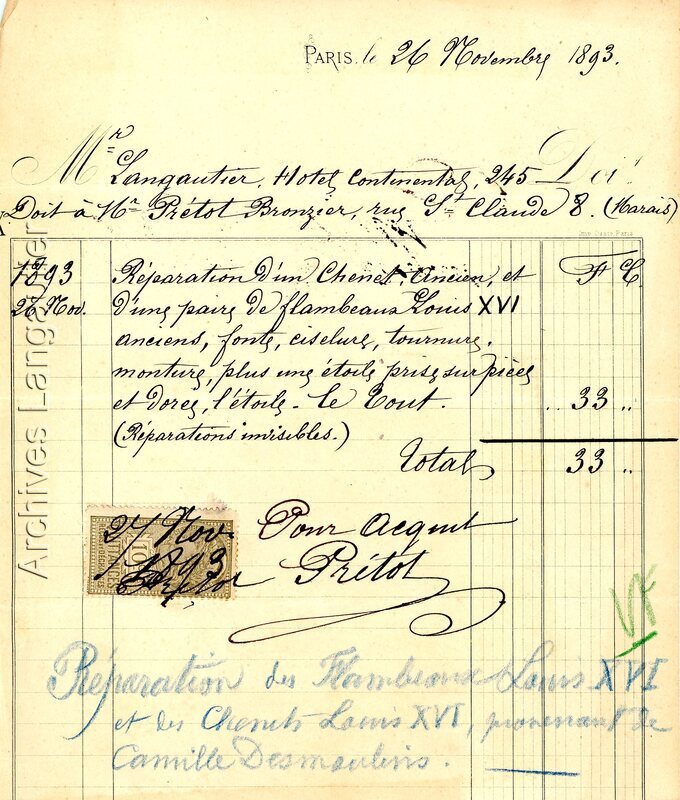 PARIS, le 26 Novembre 1893.
Mr Doit
Langautier, Hotel Continental, 245
Doit à Mr Prétot Bronzier, rue St Claude 8. (Marais)
Imp. Oasté Paris
1893 Réparation d'un Chenet, Ancien, et F C
26 Nov. d'une paire de flambeaux Louis XVI
anciens, fonte, ciselure, tournure,
monture, plus une étoile prise sur pièce
et dorée, l'étoile - le Tout. 33 "
(Réparations invisibles.)
Total 33 "
27 Nov. Pour Acquit
1893 Prétot
QUITTANCES
10
Réparation des Flambeaux Louis XVI
et des Chenets Louis XVI, provenant de
Camille Desmoulins.
Archives Langautier